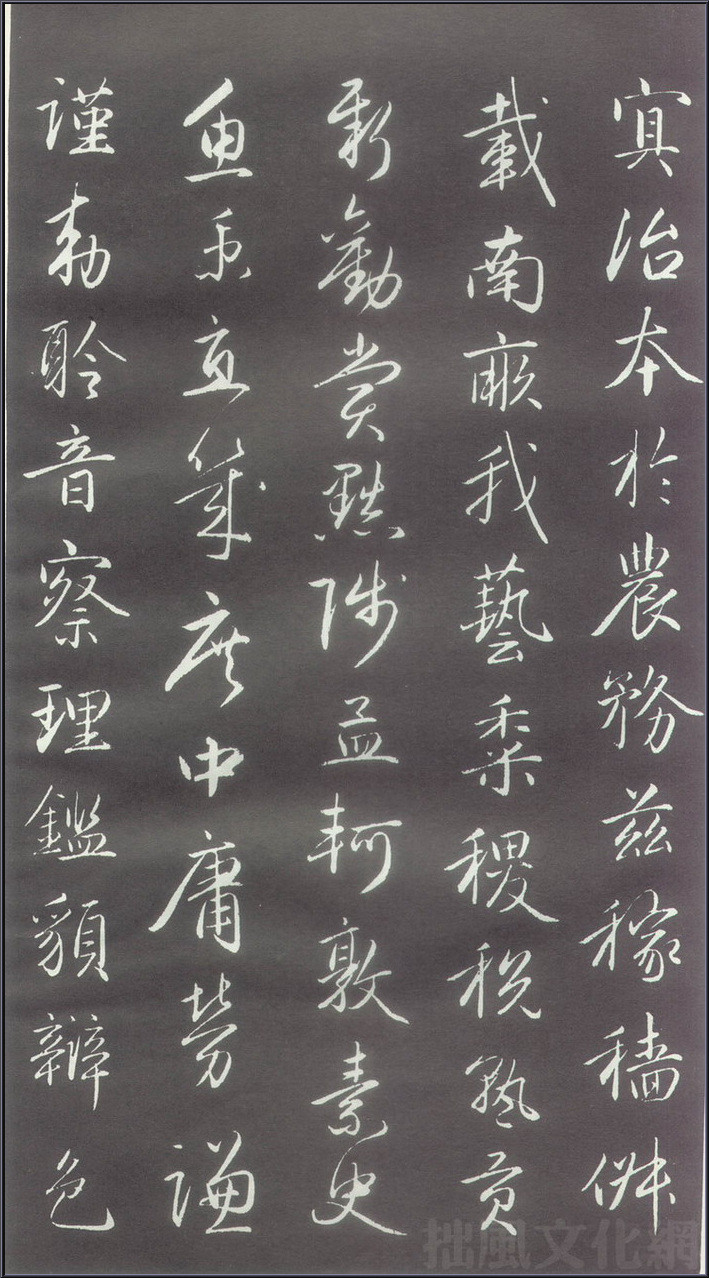 寘治本於農務兹稼穡俶
載南畝我藝黍稷稅熟貢
新勸賞黜陟孟軻敦素史
魚秉直幾庶中庸勞謙
謹勅聆音察理鑑貌辯色
拙風文化網